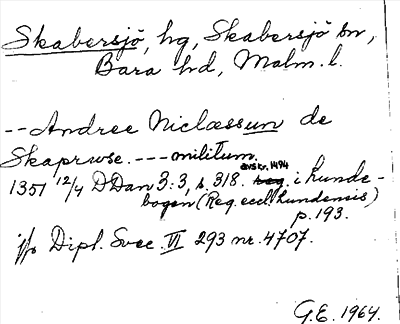 Skabersjö, hg, Skabersjö sn,
Bara hd, Malm. l.
-- Andree Niclæssun de
Skaprwse. --- militum.
avskr. 1494
1351 12/4 DDan 3:3, s. 318. i Lunde-
bogen (Reg. eccl. Lundensis)
p. 193.
jfr Dipl. Svec. VI 293 nr. 4707.
G.E. 1964.